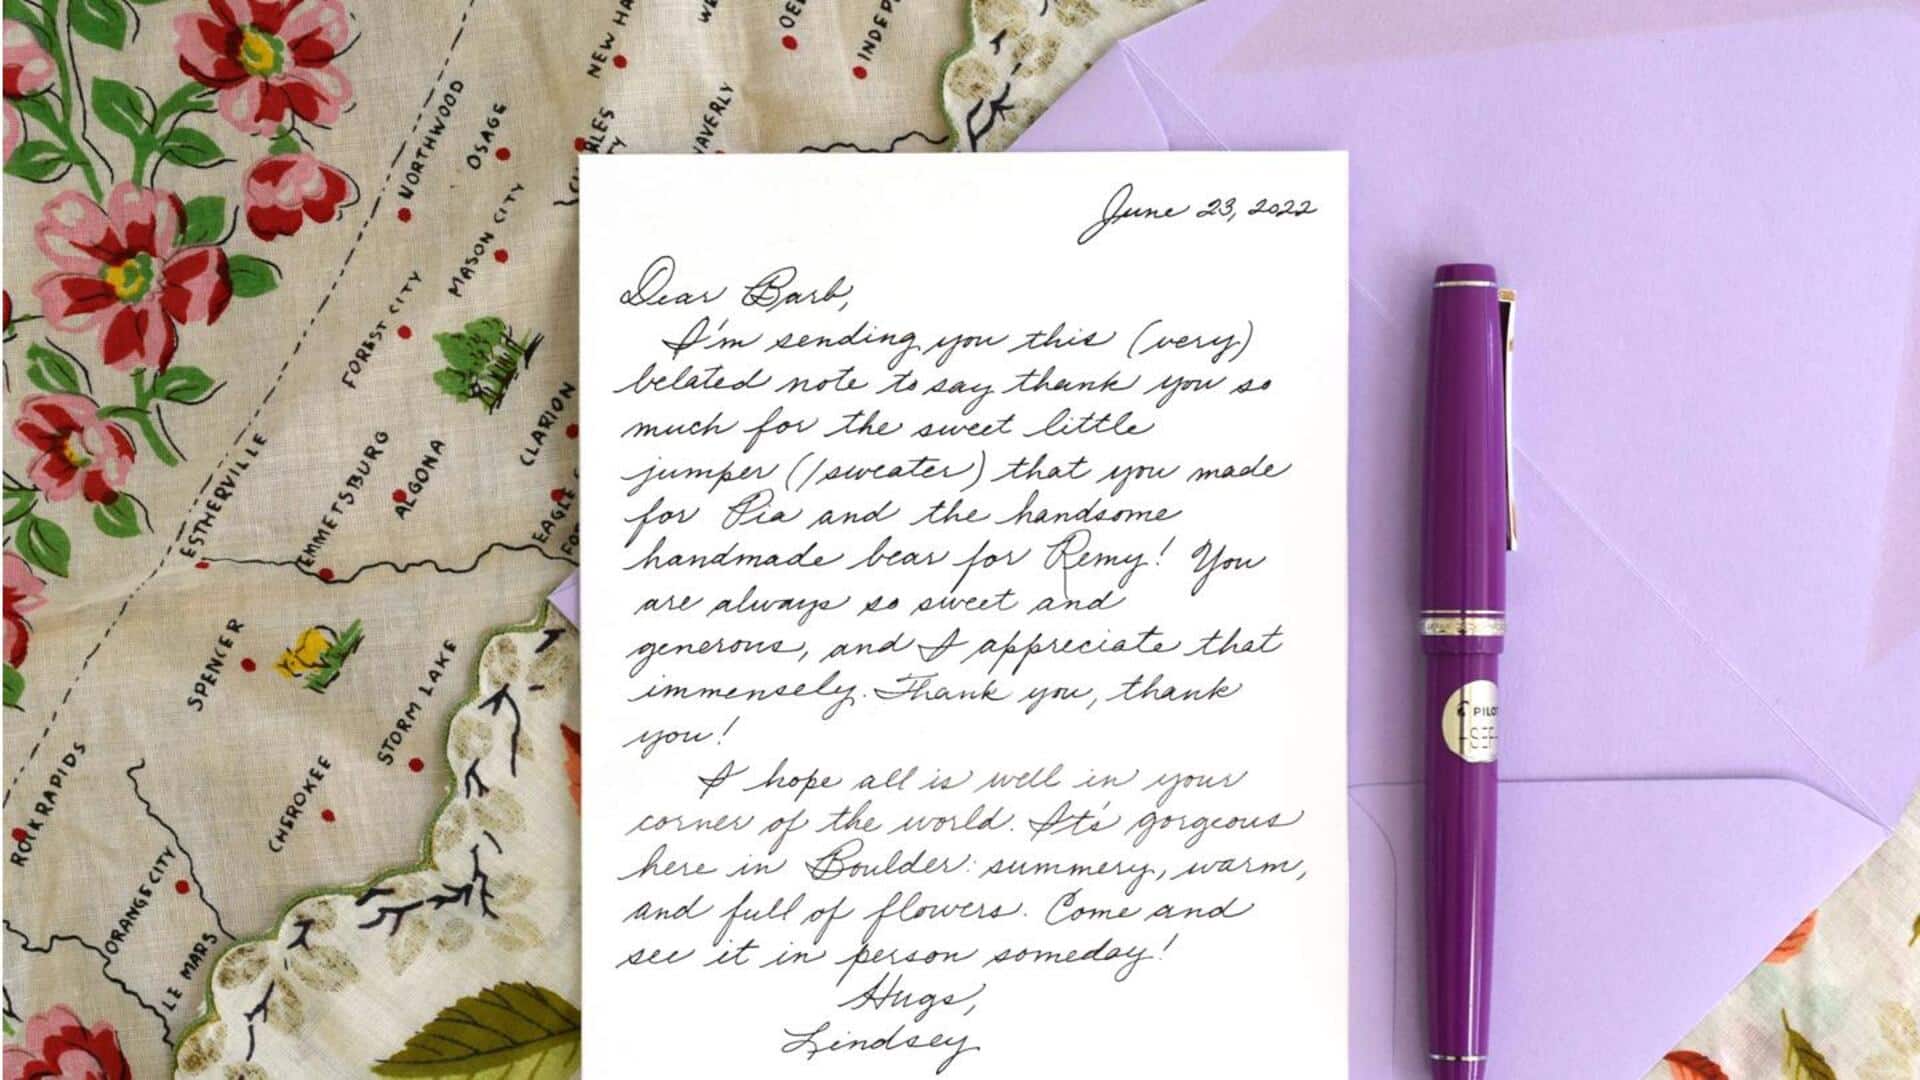 June 23, 2022
Dear Barb,
I'm sending you this (very)
belated note to say thank you so
much for the sweet little
jumper (/sweater) that you made
for Pia and the handsome
handmade bear for Remy! You
are always so sweet and
generous, and I appreciate that
immensely. Thank you, thank
you!
I hope all is well in your
corner of the world. It's gorgeous
here in Boulder: summery, warm,
and full of flowers. Come and
see it in person someday!
Hugs,
Lindsey
NEW HA
WE
OEL
INDEP
NORTHWOOD
OSAGE
RLES
TY
WAVERLY
MASON CITY
FOREST CITY
CLARION
ESTHERVILLE
EMMETSBURG
ALGONA
EAGLE
SPENCER
STORM LAKE
ROCKRAPIDS
CHEROKEE
ORANGE CITY
LE MARS
PILOT
SEF